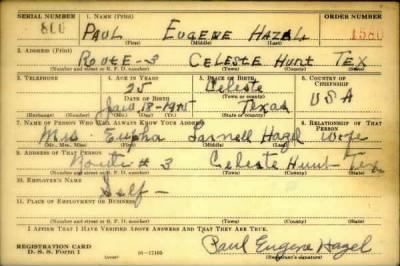 SERIAL NUMBER 1. NAME (Print) ORDER NUMBER
800 PAUL EUGENE HAZEL 1580
(First) (Middle) (Last)
2. ADDRESS (Print)
ROUTE-3 CELESTE HUNT TEX
(Number and street or R. F. D. number) (Town) (County) (State)
3. TELEPHONE 4. AGE IN YEARS 5. PLACE OF BIRTH 6. COUNTRY OF CITIZENSHIP
25 Celeste
DATE OF BIRTH (Town or county)
Jan 18-1915 Texas USA
(Exchange) (Number) (Mo.) (Day) (Yr.) (State or country)
7. NAME OF PERSON WHO WILL ALWAYS KNOW YOUR ADDRESS 8. RELATIONSHIP OF THAT PERSON
Mrs Eupha Hazel wife
(Mr., Mrs., Miss) (First) (Middle) (Last)
9. ADDRESS OF THAT PERSON
Route # 3 Celeste Hunt- Tex
(Number and street or R. F. D. number) (Town) (County) (State)
10. EMPLOYER'S NAME
Self-
11. PLACE OF EMPLOYMENT OR BUSINESS
(Number and street or R. F. D. number) (Town) (County) (State)
I AFFIRM THAT I HAVE VERIFIED ABOVE ANSWERS AND THAT THEY ARE TRUE.
REGISTRATION CARD
D. S. S. Form 1 16-17105 Paul Eugene Hazel
(Registrant's signature)